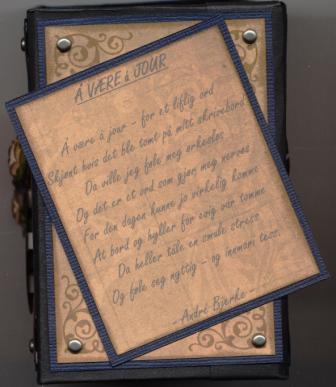 Å VÆRE à JOUR
Å være à jour - for et liflig ord
Skjønt hvis det ble tomt på mitt skrivebord
Da ville jeg føle meg arbeidsløs
Og det er et ord som gjør meg nervøs
For den dagen kunne jo virkelig komme
At bord og hyller for evig var tomme
Da heller tåle en smule stress
Og føle seg nyttig - og innmari tess.
- André Bjerke -